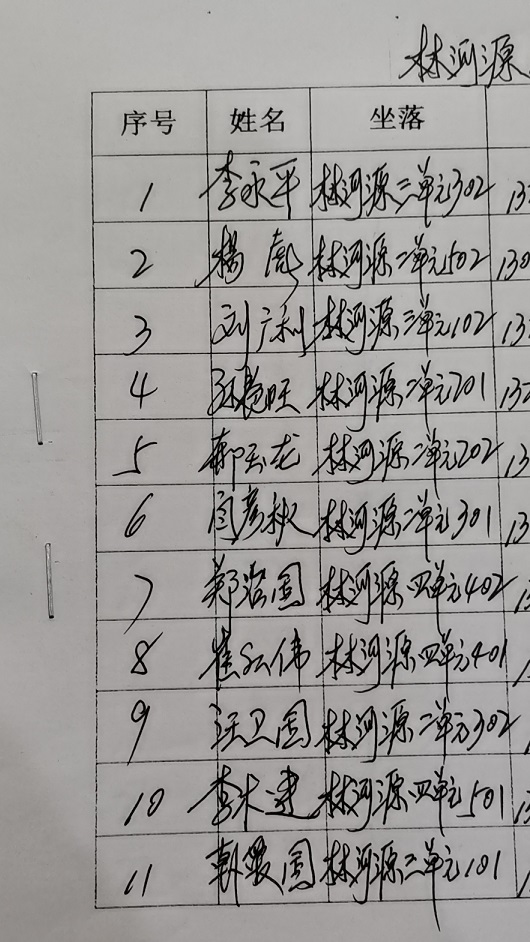 林河源
序号 姓名 坐落
1 李永平 林河源三单元302 13
2 杨彪 林河源二单元502 130
3 刘广利 林河源三单元102 13
4 旺 林河源二单元201 13
5 龙 林河源二单元202 13
6 闫彦秋 林河源二单元301 13
7 郑治国 林河源四单元402
8 崔红伟 林河源四单元401
9 汪卫国 林河源二单元302
10 李木建 林河源四单元501
11 国 林河源三单元101